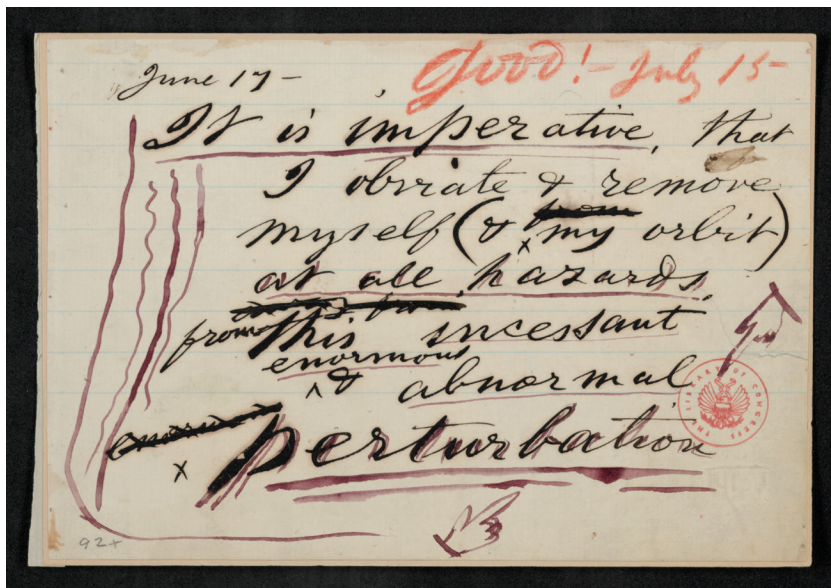 June 17 –
Good! – July 15 –
It is imperative, that
I obviate & remove
from
myself (& my orbit)
x
at all hazards,
from this incessant
enormous
^ & abnormal
enormous
perturbation
x
THE LIBRARY OF CONGRESS
92+